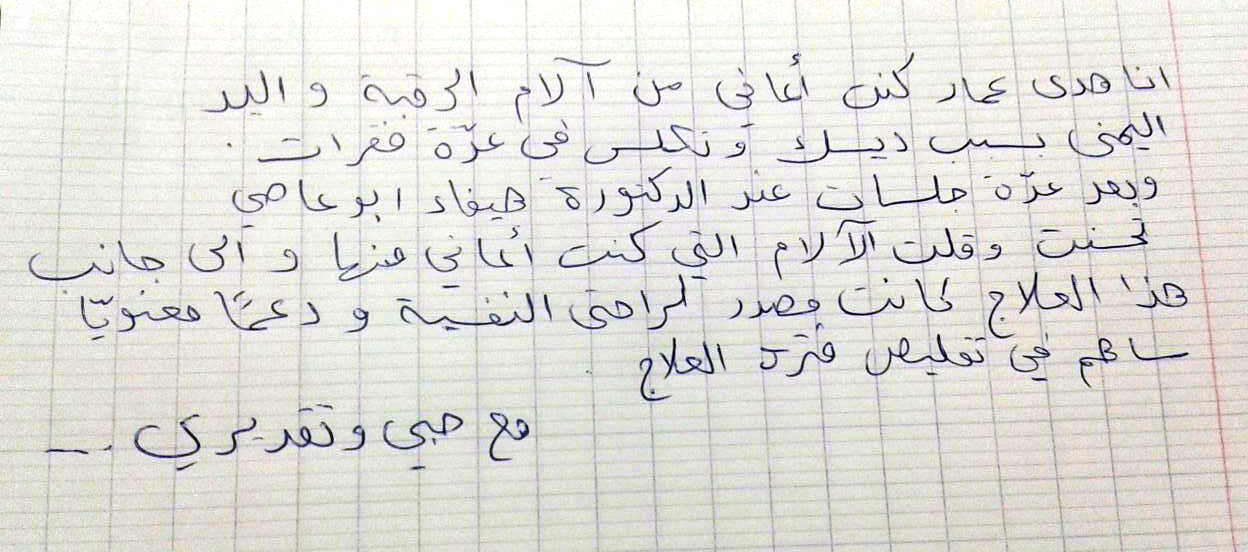 انا هدى عمار كنت أعاني من آلام الرقبة و اليد
اليمنى بسبب ديسك و تكلس في عدّة فقرات .
وبعد عدّة جلسات عند الدكتورة هيفاء ابو عاصي
تحسنت وقلت الآلام التي كنت أعاني منها و الى جانب
هذا العلاج كانت مصدر لراحتي النفسية و دعمًا معنويّا
ساهم في تقليص فترة العلاج
مع حبي وتقديري ...